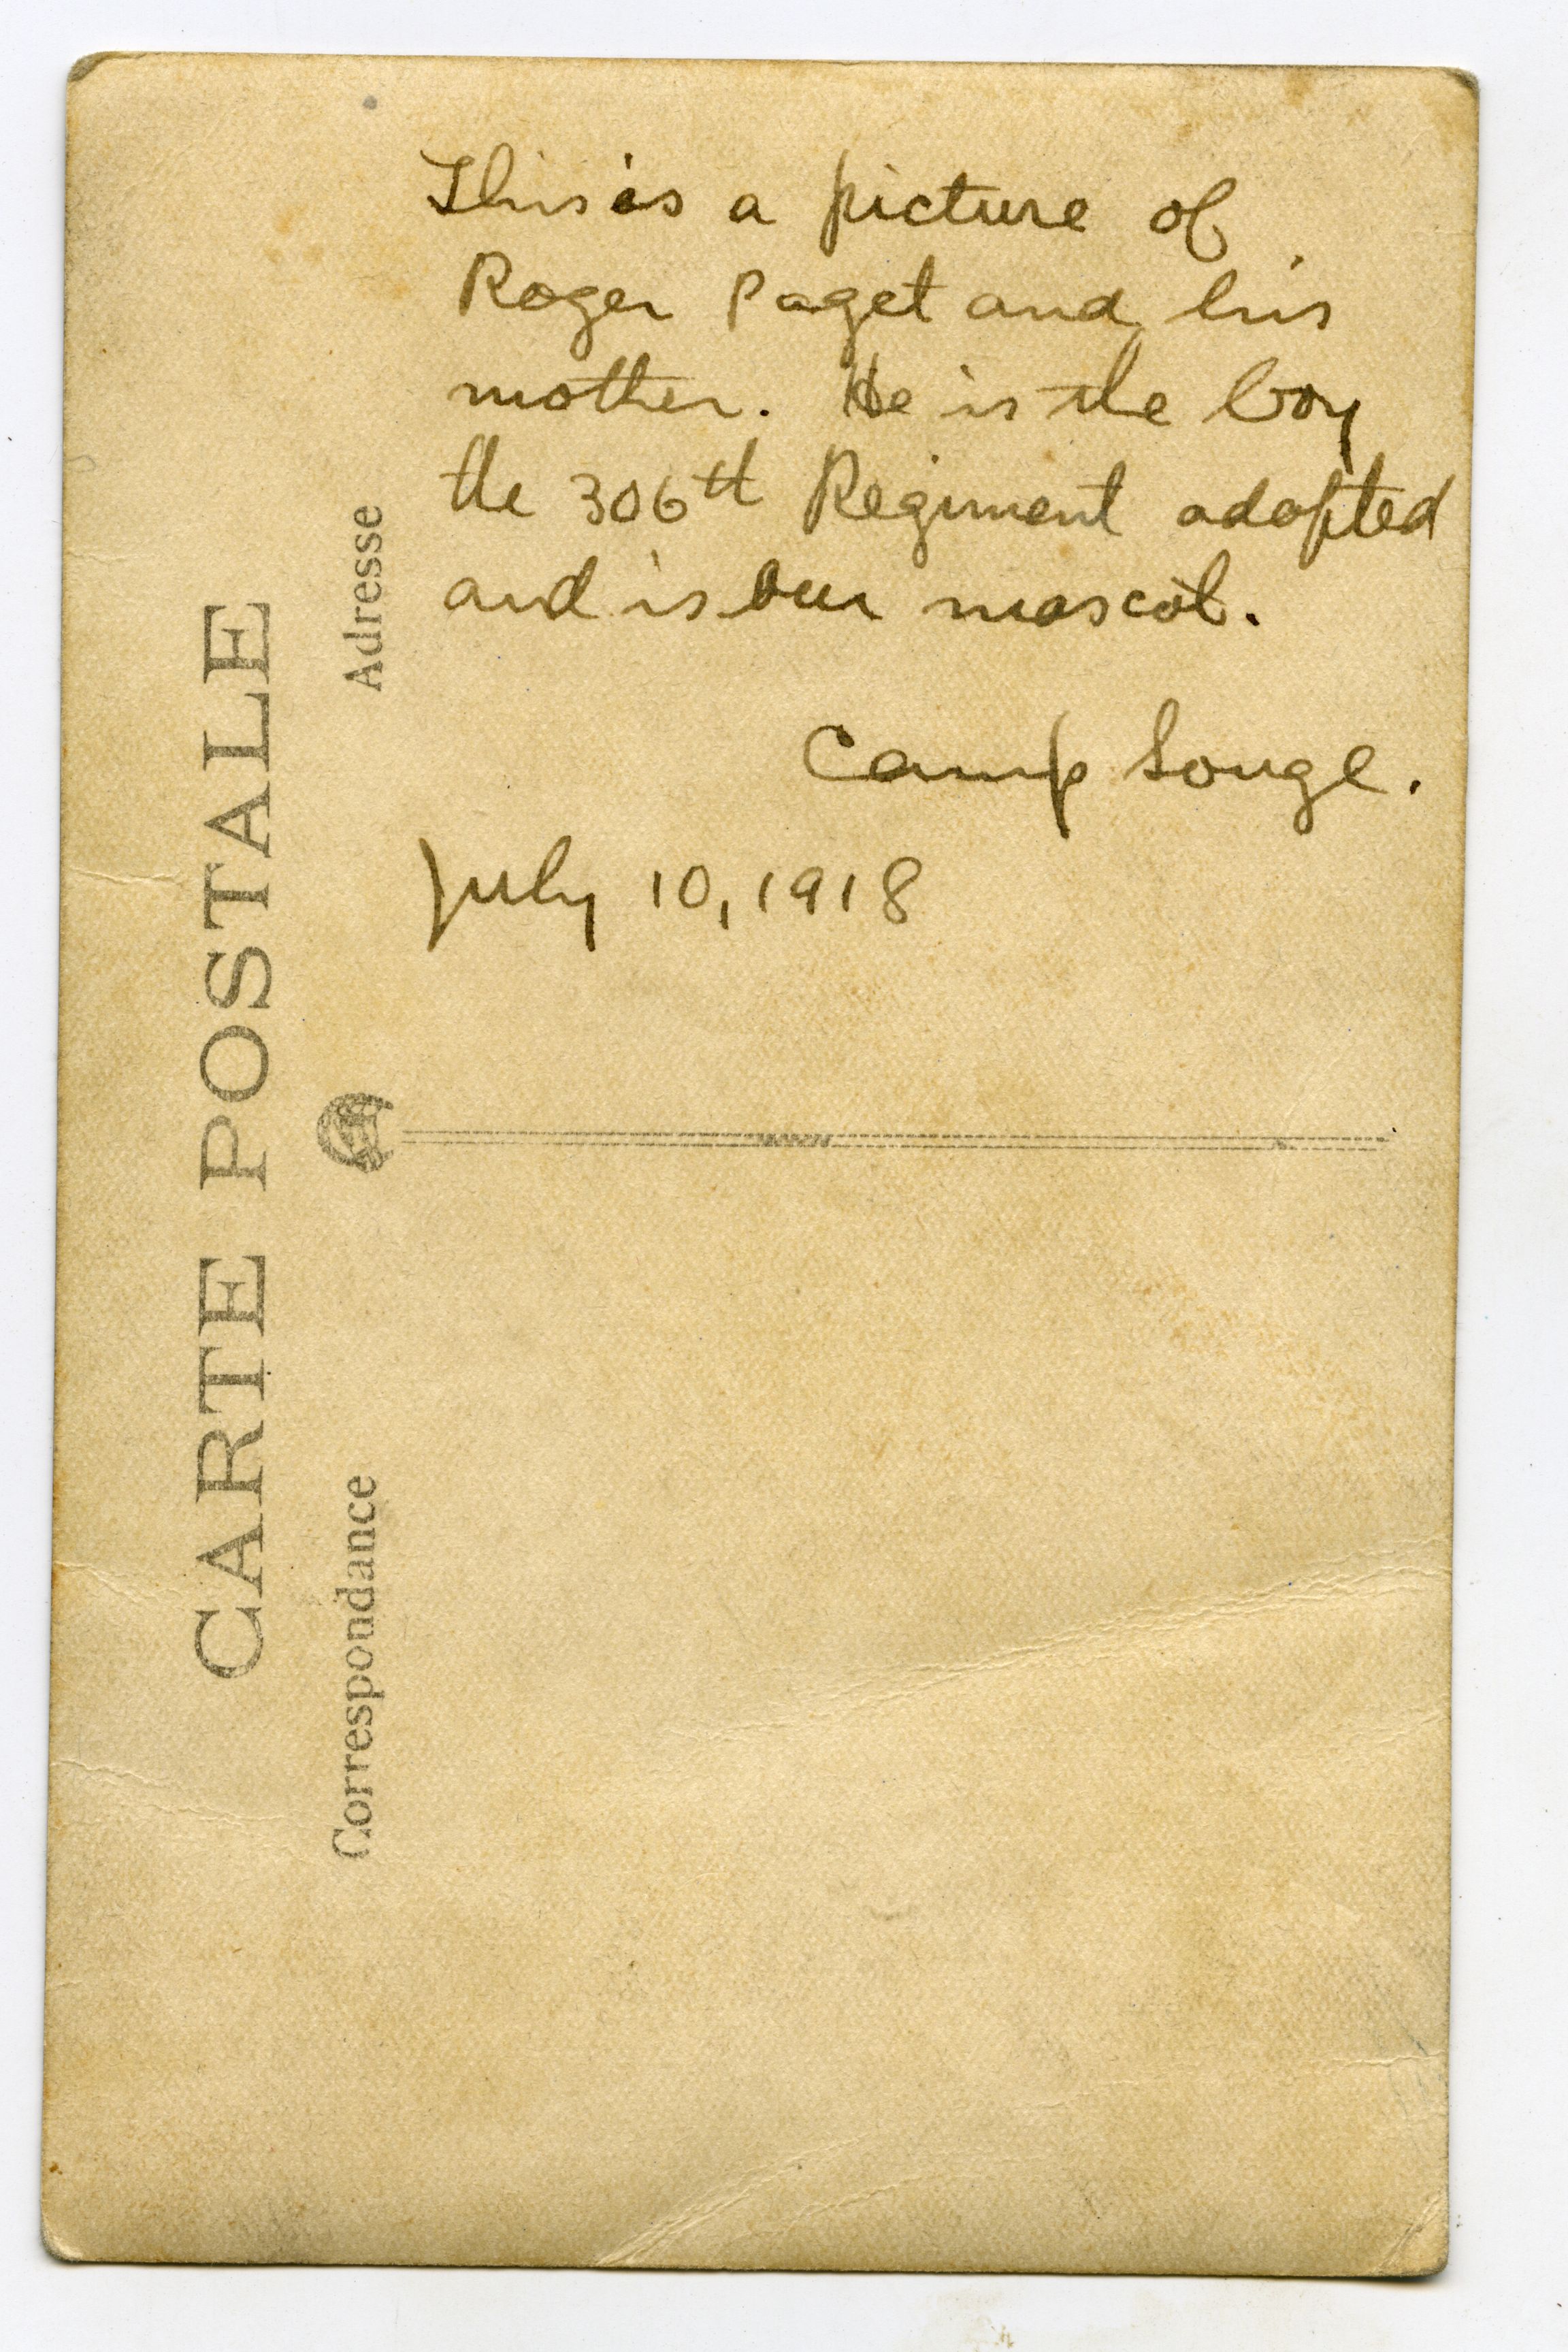 This is a picture of
Roger Paget and his
mother. He is the boy
the 306th Regiment adopted
and is our mascot.
Camp Souge.
July 10, 1918
CARTE POSTALE
Correspondance
Adresse